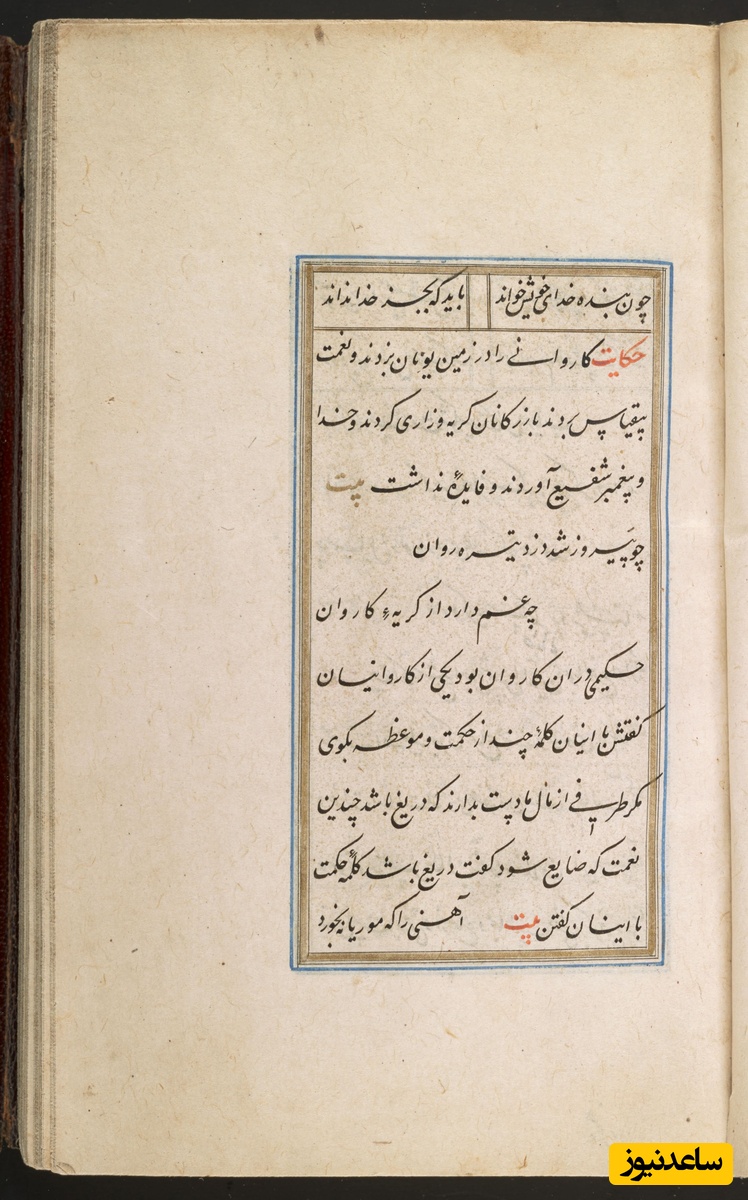 چون بنده خدای خویش خواند باید که بجز خدا نداند
حکایت کاروانی را در زمین یونان بزدند و نعمت
بیقیاس بردند بازرکانان کریه و زاری کردند و خدا
و پیغمبر شفیع آوردند و فایدهٔ نداشت بیت
چو پیروز شد دزد تیره روان
چه غم دارد از کریهٔ کاروان
حکیمی دران کاروان بود یکی از کاروانیان
کفتش با اینان کلمهٔ چند از حکمت و موعظه بکوی
مکر طرفی از مال ما دست بدارند که دریغ باشد چندین
نعمت که ضایع شود کفت دریغ باشد کلمهٔ حکمت
با اینان کفتن بیت آهنی را که موریانه بخورد
ساعدنیوز